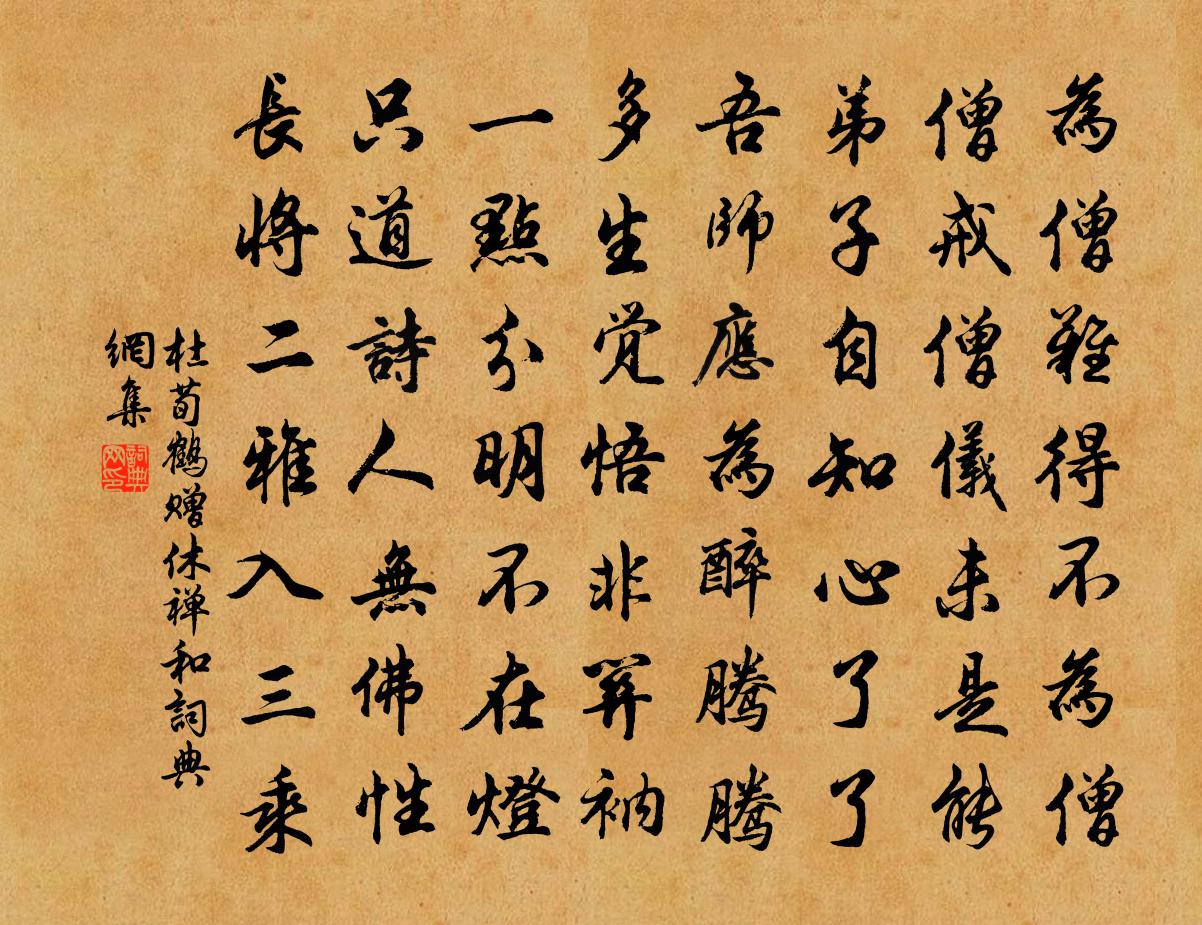 為僧難得不為僧
僧戒僧儀未是能
弟子自知心了了
吾師應為醉騰騰
多生覺悟非關衲
一點分明不在燈
只道詩人無佛性
長將二雅入三乘
杜荀鶴贈休禪和詞典
網集
詞典
网印